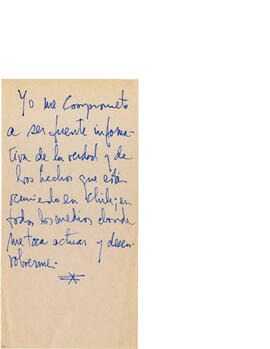 Yo me Comprometo
a ser fuente informa-
tiva de la verdad y de
los hechos que está
ocurriendo en Chile; en
todos los medios donde
me toca actuar y desen-
volverme.